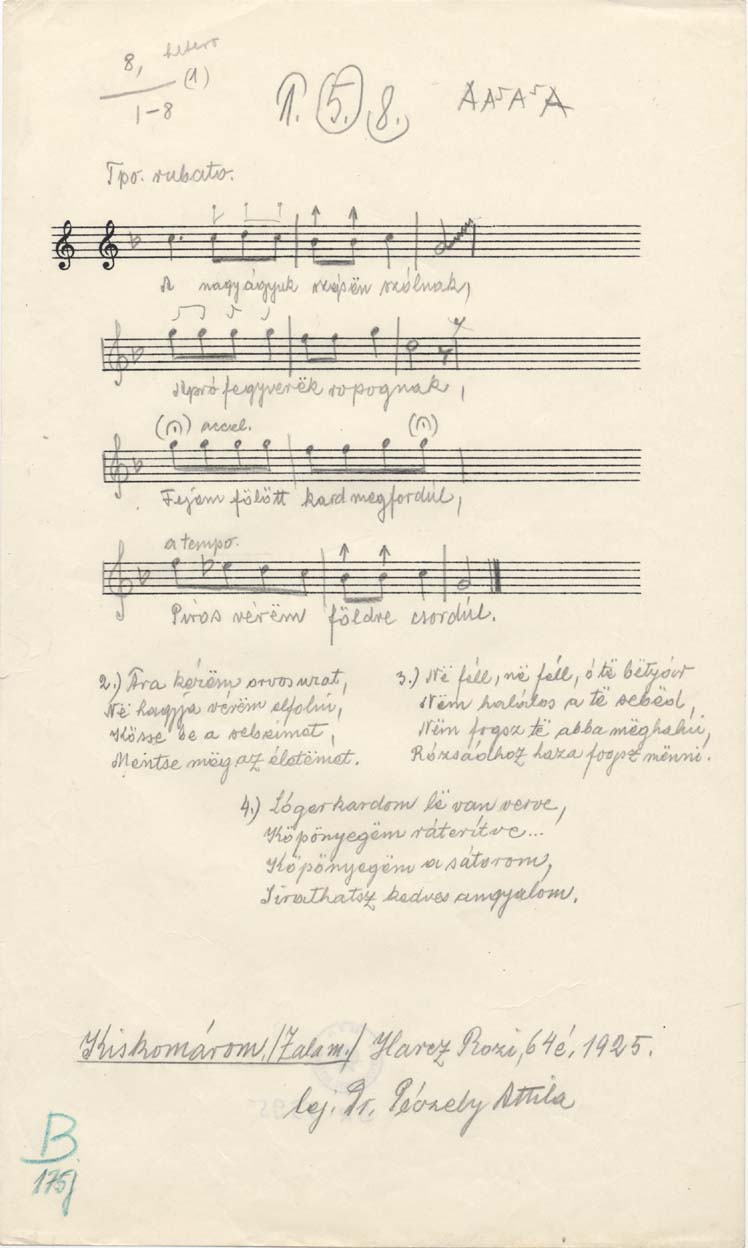 8, hetero
(1)
1-8
1. 5. 8.
A A A A
Tpo. rubato.
A nagyágyuk szépën szólnak,
Apró fegyverëk ropognak,
accel.
Fejem fölött kard mëgfordúl,
a tempo.
Piros vérëm földre csordúl.
2.) Ára kérëm orvosurat,
Në hagyja vérëm elfolni,
Kösse be a sebeimet,
Mentse mëg az életëmet.
3.) Në féll, në féll, ó të bëtyár
Nëm halálos a të sebëd,
Nëm fogsz të abba mëghalni,
Rózsádhoz haza fogsz mënni.
4.) Lógerkardom lë van verve,
Köpönyegëm ráterítve...
Köpönyegëm a sátorom,
Sirathatsz kedves angyalom.
Kiskomárom, /Zala m./ Harcz Rozi, 64é, 1925.
lej. Dr. Péczely Attila
B
175j